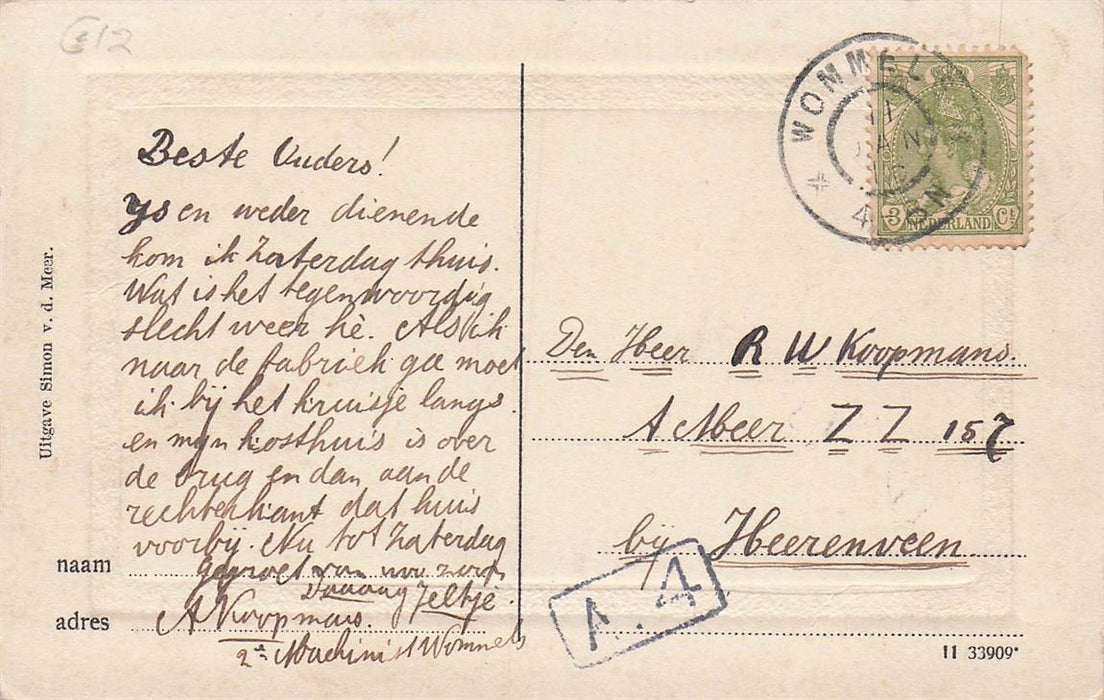 Uitgave Simon v. d. Meer.
Beste Ouders!
Ys en weder dienende
kom ik Zaterdag thuis.
Wat is het tegenwoordig
slecht weer hè. Als ik
naar de fabriek ga moet
ik bij het kruisje langs
en mijn kosthuis is over
de brug en dan aan de
rechterkant dat huis
voorbij. Nu tot Zaterdag
gegroet van uw zoon
Daaaag Jeltje.
A Koopmans.
2e Machinist Wommels
naam
adres
WOMMELS
11
JAN
4
ON
3 NEDERLAND Ct
Den Heer R W Koopmans.
A Meer Z Z 157
bij Heerenveen
A. 4
11 33909*